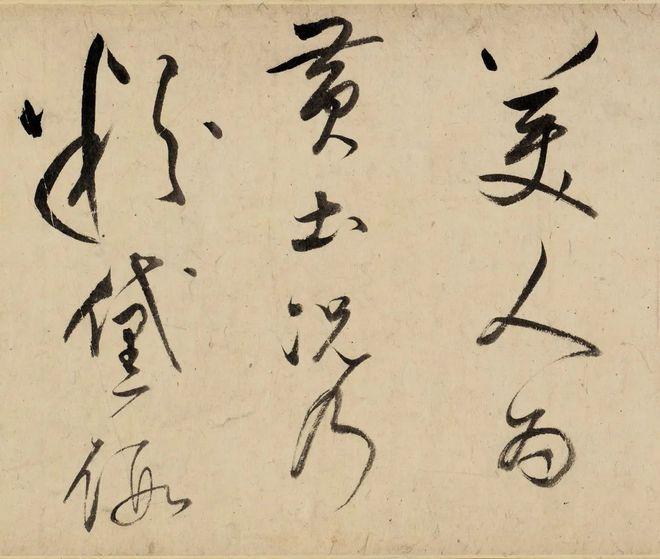 美人為
黃土況乃
粉黛假